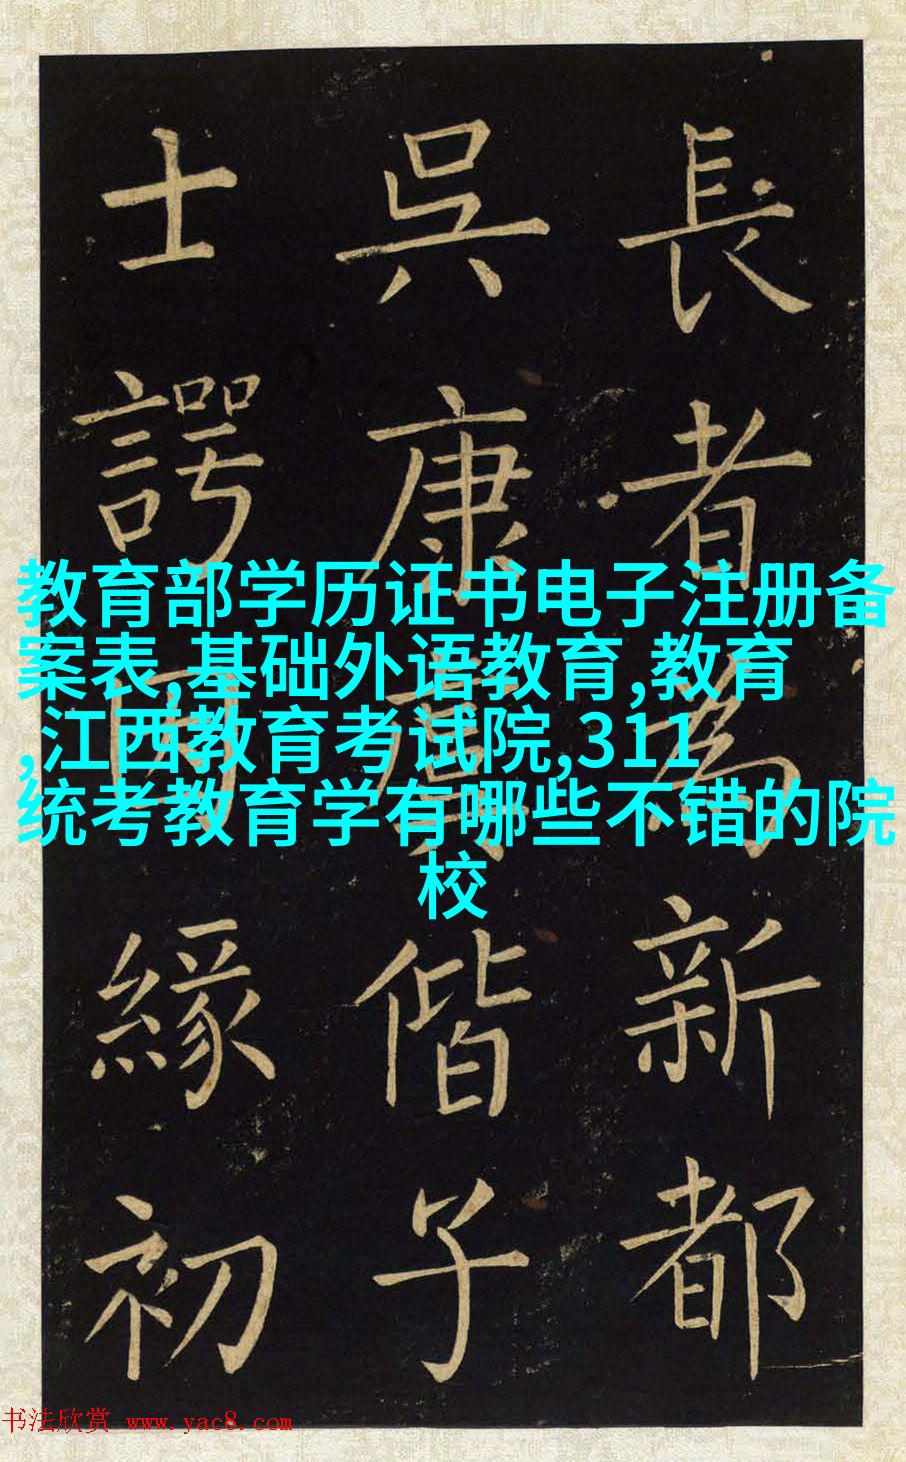 長者為新都
吳康偕子
士諤緣初
教育部学历证书电子注册备
案表,基础外语教育,教育
,江西教育考试院,311
统考教育学有哪些不错的院
校
书法欣赏 www.yac8.com